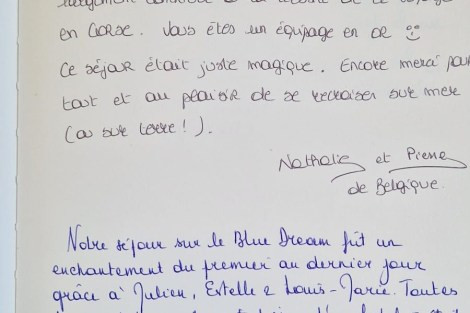 en CORSE. Vous êtes un équipage en OR
Ce séjour était juste magique. Encore merci pour
tout et au plaisir de se recroiser sur mer
(ou sur terre !).
Nathalie et Pierre
de Belgique.
Notre séjour sur le Blue Dream fût un
enchantement du premier au dernier jour
grâce à Julien, Estelle & Louis-Marie. Toutes